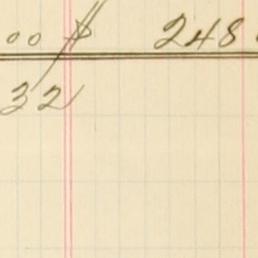 00 $ 248
32